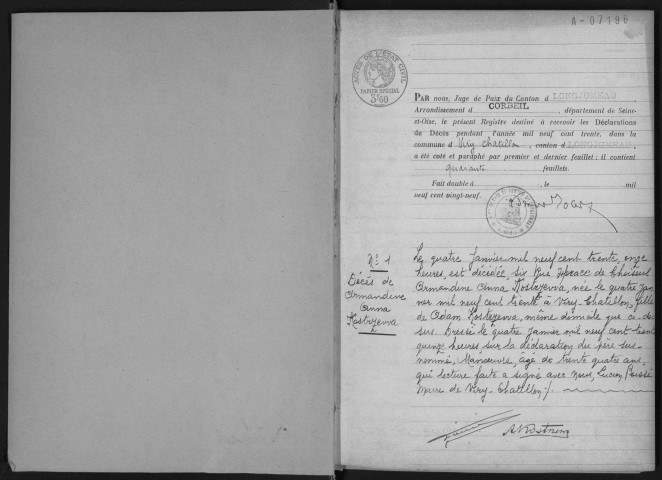 A-07196
ACTES DE L'ÉTAT CIVIL
PAPIER SPÉCIAL
3f60
PAR nous, Juge de Paix du Canton d LONGJUMEAU
Arrondissement d CORBEIL, département de Seine-
et-Oise, le présent Registre destiné à recevoir les Déclarations
de Décès pendant l'année mil neuf cent trente, dans la
commune d Viry Chatillon, canton d LONGJUMEAU,
a été coté et paraphé par premier et dernier feuillet; il contient
quarante feuillets.
Fait double à , le mil
neuf cent vingt-neuf.
N° 1
Décès de
Armandine
Anna
Kostrzewa
Le quatre Janvier mil neuf cent trente, onze
heures, est décédée, six Rue Horace de Choiseul
Armandine Anna Kostrzewa, née le quatre Jan
vier mil neuf cent trente à Viry-Chatillon, fille
de Adam Kostrzewa, même domicile que ci-des
sus. Dressé le quatre Janvier mil neuf cent trente
quinze heures, sur la déclaration du père sus-
nommé, Manœuvre, âgé de trente quatre ans,
qui lecture faite a signé avec Nous, Lucien
Maire de Viry-Chatillon ./.